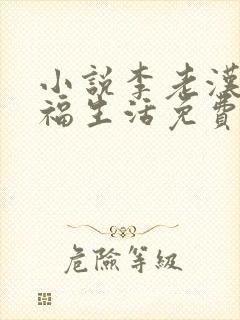 小説李老漢
福生活免費
危險等級